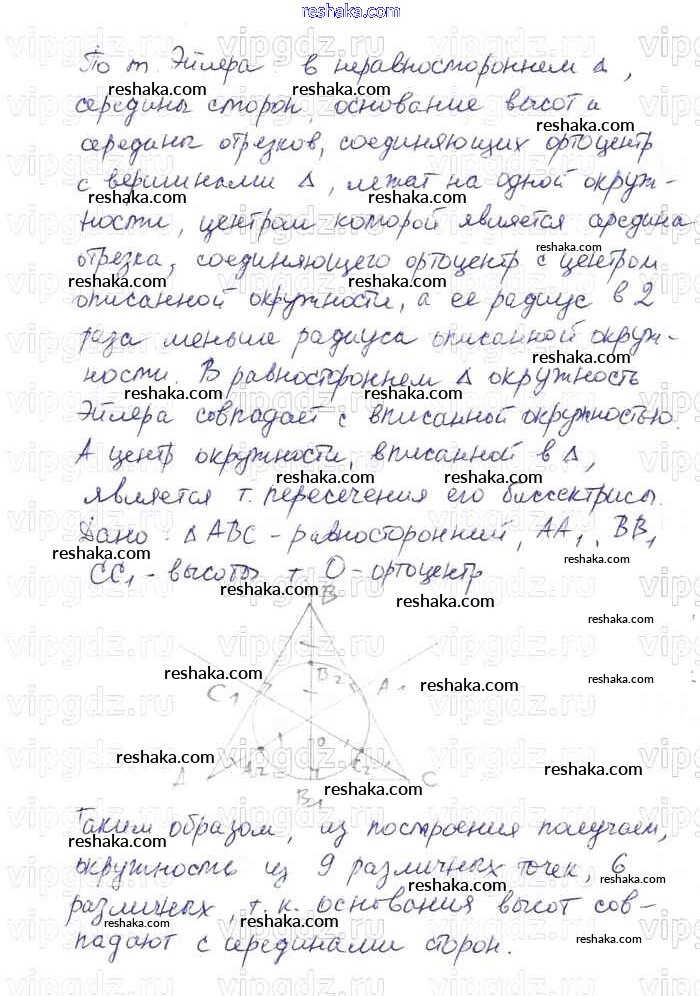 reshaka.com
По т. Эйлера в неравностороннем Δ,
середины сторон, основание высот и
середины отрезков, соединяющих ортоцентр
с вершинами Δ, лежат на одной окруж-
ности, центром которой является середина
отрезка, соединяющего ортоцентр с центром
описанной окружности, а ее радиус в 2
раза меньше радиуса описанной окруж-
ности. В равностороннем Δ окружность
Эйлера совпадает с вписанной окружностью.
А центр окружности, вписанной в Δ,
является т. пересечения его биссектрисы.
Дано: ΔABC - равносторонний, AA₁, BB₁
CC₁ - высоты т О - ортоцентр
B
C₁ B₂ A₁
O
A A₂ C₂ C
B₁
Таким образом, из построения получаем,
окружность из 9 различных точек, 6
различных, т.к. основания высот сов-
падают с серединами сторон.